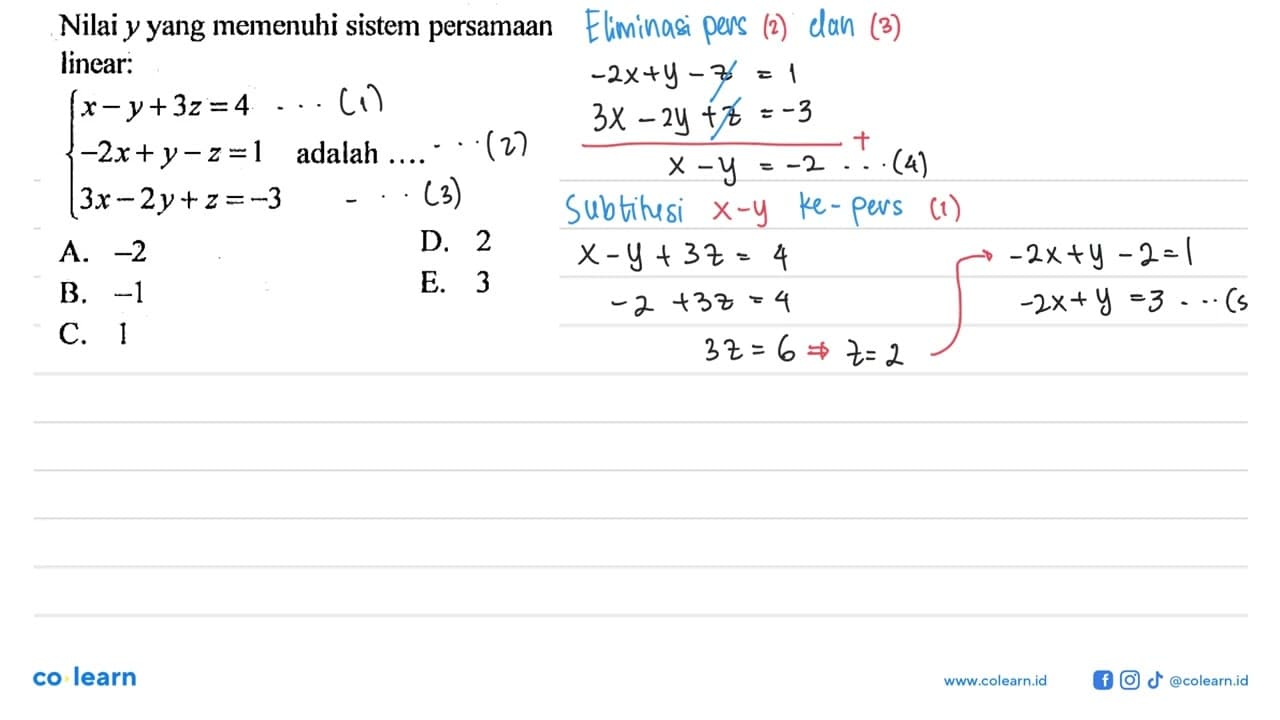 Nilai y yang memenuhi sistem persamaan
linear:
x - y + 3z = 4 ... (1)
-2x + y - z = 1 adalah .... ... (2)
3x - 2y + z = -3 ... (3)
A. -2
B. -1
C. 1
D. 2
E. 3
Eliminasi pers (2) dan (3)
-2x + y - z = 1
3x - 2y + z = -3
+
x - y = -2 ... (4)
Subtitusi x-y ke-pers (1)
x - y + 3z = 4
-2 + 3z = 4
3z = 6 ⇒ z = 2
-2x + y - 2 = 1
-2x + y = 3 ... (5
co learn
www.colearn.id
@colearn.id